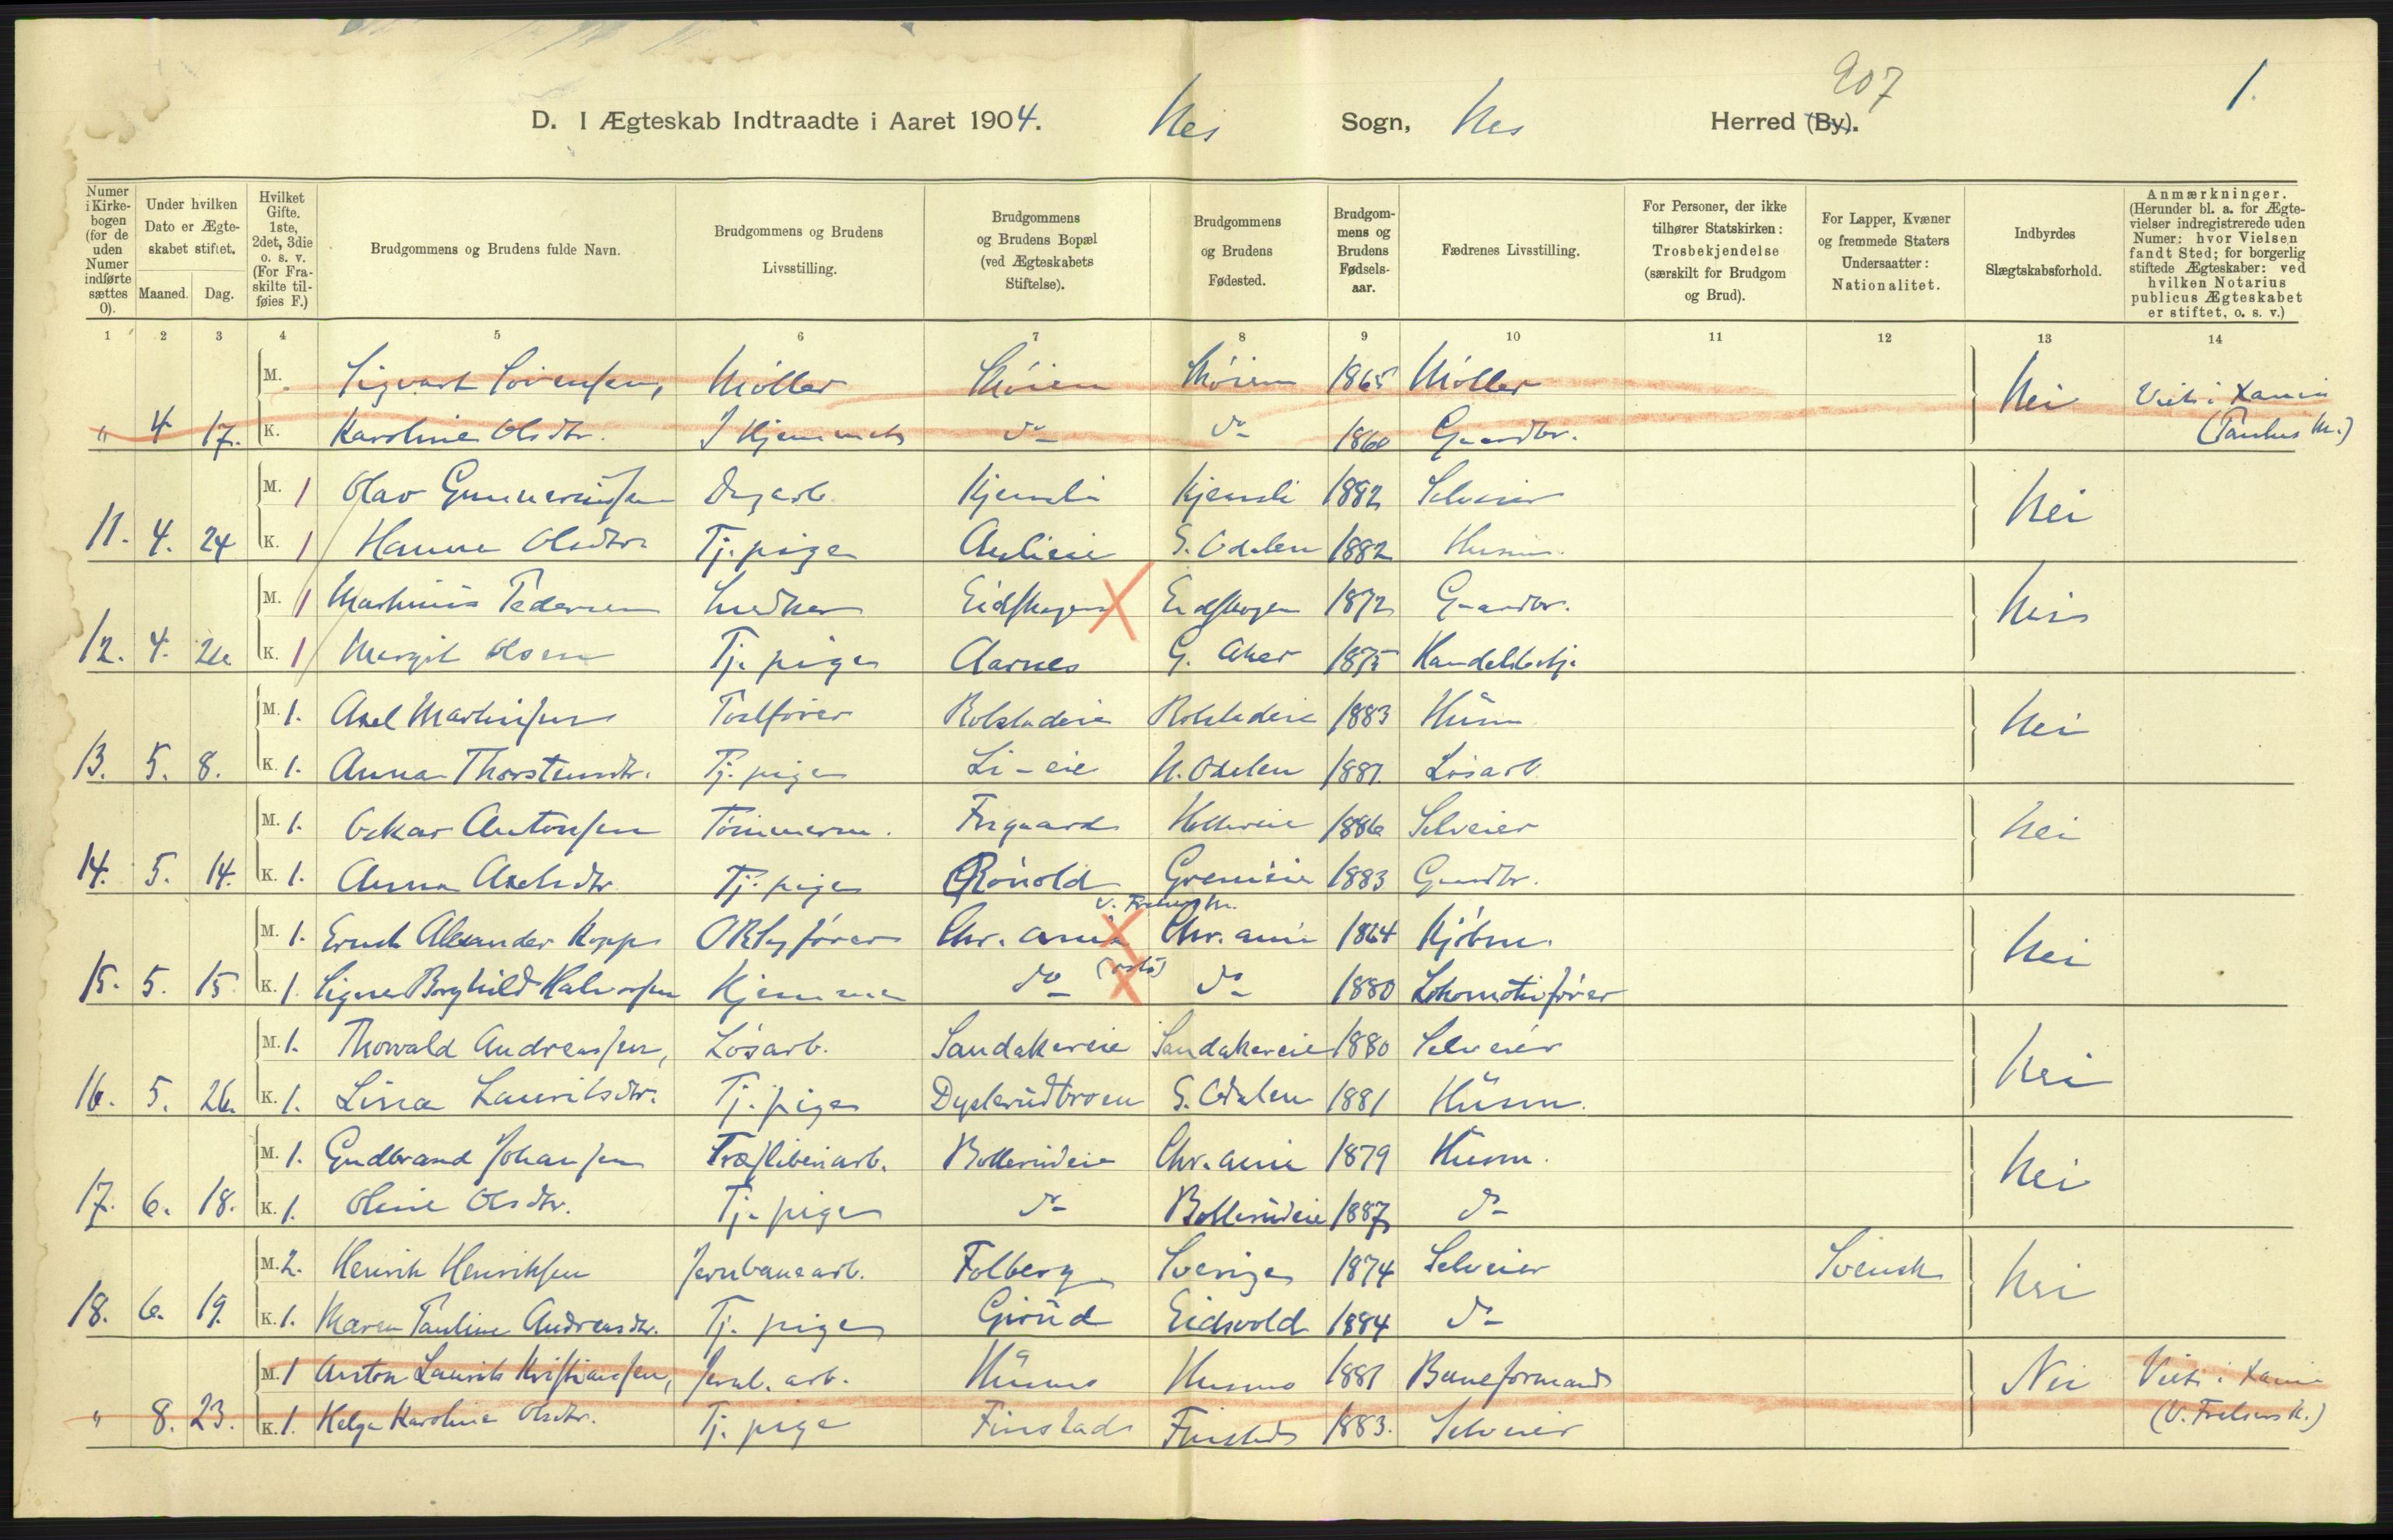 207
1.
D. I Ægteskab Indtraadte i Aaret 1904. Nes Sogn, Nes Herred (By).
Numer i Kirke-bogen (for de uden Numer indførte sættes 0).
Under hvilken Dato er Ægte-skabet stiftet.
Maaned. Dag.
Hvilket Gifte. 1ste, 2det, 3die o. s. v. (For Fra-skilte til-føies F.)
Brudgommens og Brudens fulde Navn.
Brudgommens og Brudens Livsstilling.
Brudgommens og Brudens Bopæl (ved Ægteskabets Stiftelse).
Brudgommens og Brudens Fødested.
Brudgom-mens og Brudens Fødsels-aar.
Fædrenes Livsstilling.
For Personer, der ikke tilhører Statskirken: Trosbekjendelse (særskilt for Brudgom og Brud).
For Lapper, Kvæner og fremmede Staters Undersaatter: Nationalitet.
Indbyrdes Slægtskabsforhold.
Anmærkninger. (Herunder bl. a. for Ægte-vielser indregistrerede uden Numer: hvor Vielsen fandt Sted; for borgerlig stiftede Ægteskaber: ved hvilken Notarius publicus Ægteskabet er stiftet, o. s. v.)
1 2 3 4 5 6 7 8 9 10 11 12 13 14
M. Sigvart Sörensen, Möller 1865 Möller Nei
" 4 17. K. Karoline Olsdtr. do do 1860 Gaardbr.
M. 1 Olav Gunneriussen Dagarb. Kjemsli Kjemsli 1882 Selveier Nei
11. 4. 24 K. 1 Hanna Olsdtr. Tj. pige Aulieie S. Odalen 1882 Husm.
M. 1 Martinius Pedersen Snedker Eidskogen Eidskogen 1872 Gaardbr. Nei
12. 4. 24 K. 1 Margit Olsen Tj. pige Aarnes G. Aker 1875 Handelsbetj.
M. 1. Axel Martinsen Rolstadeie Rolstadeie 1883 Husm. Nei
13. 5. 8. K. 1. Anna Thorstensdtr. Tj. pige Li-eie N. Odalen 1881 Lösarb.
M. 1. Oskar Antonsen Tömmerm. 1886 Selveier Nei
14. 5. 14. K. 1. Anna Axelsdtr. Tj. pige Rönold 1883 Gaardbr.
M. 1. Ernst Alexander Kopp Chr.ania Chr.ania 1864 Kjöbm. Nei
15. 5. 15 K. 1. Signe Borghild Halvorsen Hjemme do do 1880 Lokomotivförer
M. 1. Thorvald Andreassen, Lösarb. Sandakereie Sandakereie 1880 Selveier Nei
16. 5. 26. K. 1. Lina Lauritsdtr. Tj. pige Dysterudbroen S. Odalen 1881 Husm.
M. 1. Gudbrand Johansen Træsliberiarb. Bollerudeie Chr.ania 1879 Husm. Nei
17. 6. 18. K. 1. Oline Olsdtr. Tj. pige do Bollerudeie 1887 do
M. 2. Henrik Henriksen Jernbanearb. Folberg Sverige 1874 Selveier Svensk Nei
18. 6. 19. K. 1. Maren Pauline Andreasdtr. Tj. pige Eidsvold 1884 do
M. 1 Anton Laurits Kristiansen, Jernb. arb. Husmo Husmo 1881 Baneformand Nei
" 8. 23. K. 1. Helga Karoline Olsdtr. Tj. pige Finstad Finstad 1883. Selveier (V. Frelsers K.)